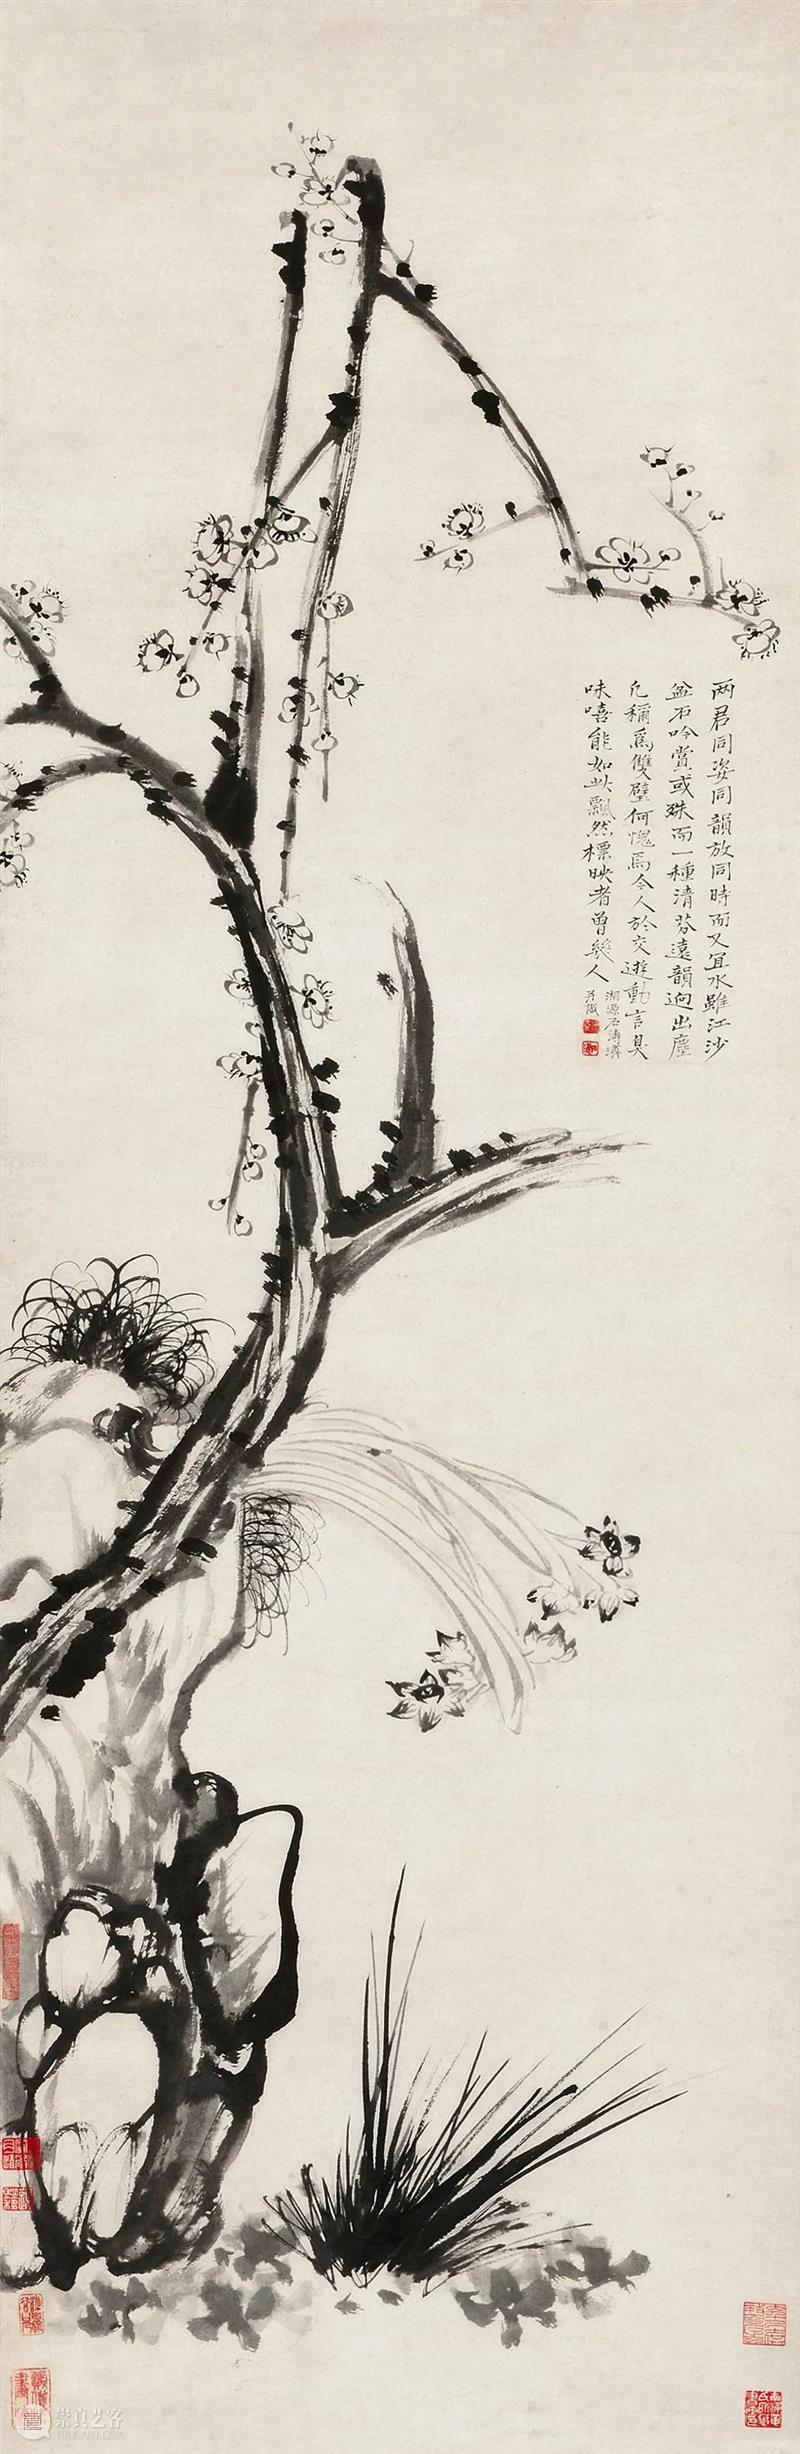 两君同姿同韻放同時而又宜水雖江沙
盆石吟賞或殊而一種清芬遠韻迥出塵
凡稱為雙壁何愧焉今人於交遊動言臭
味嘻能如此飄然標映者曾幾人
湘源石濤濟
并識
崇真艺客